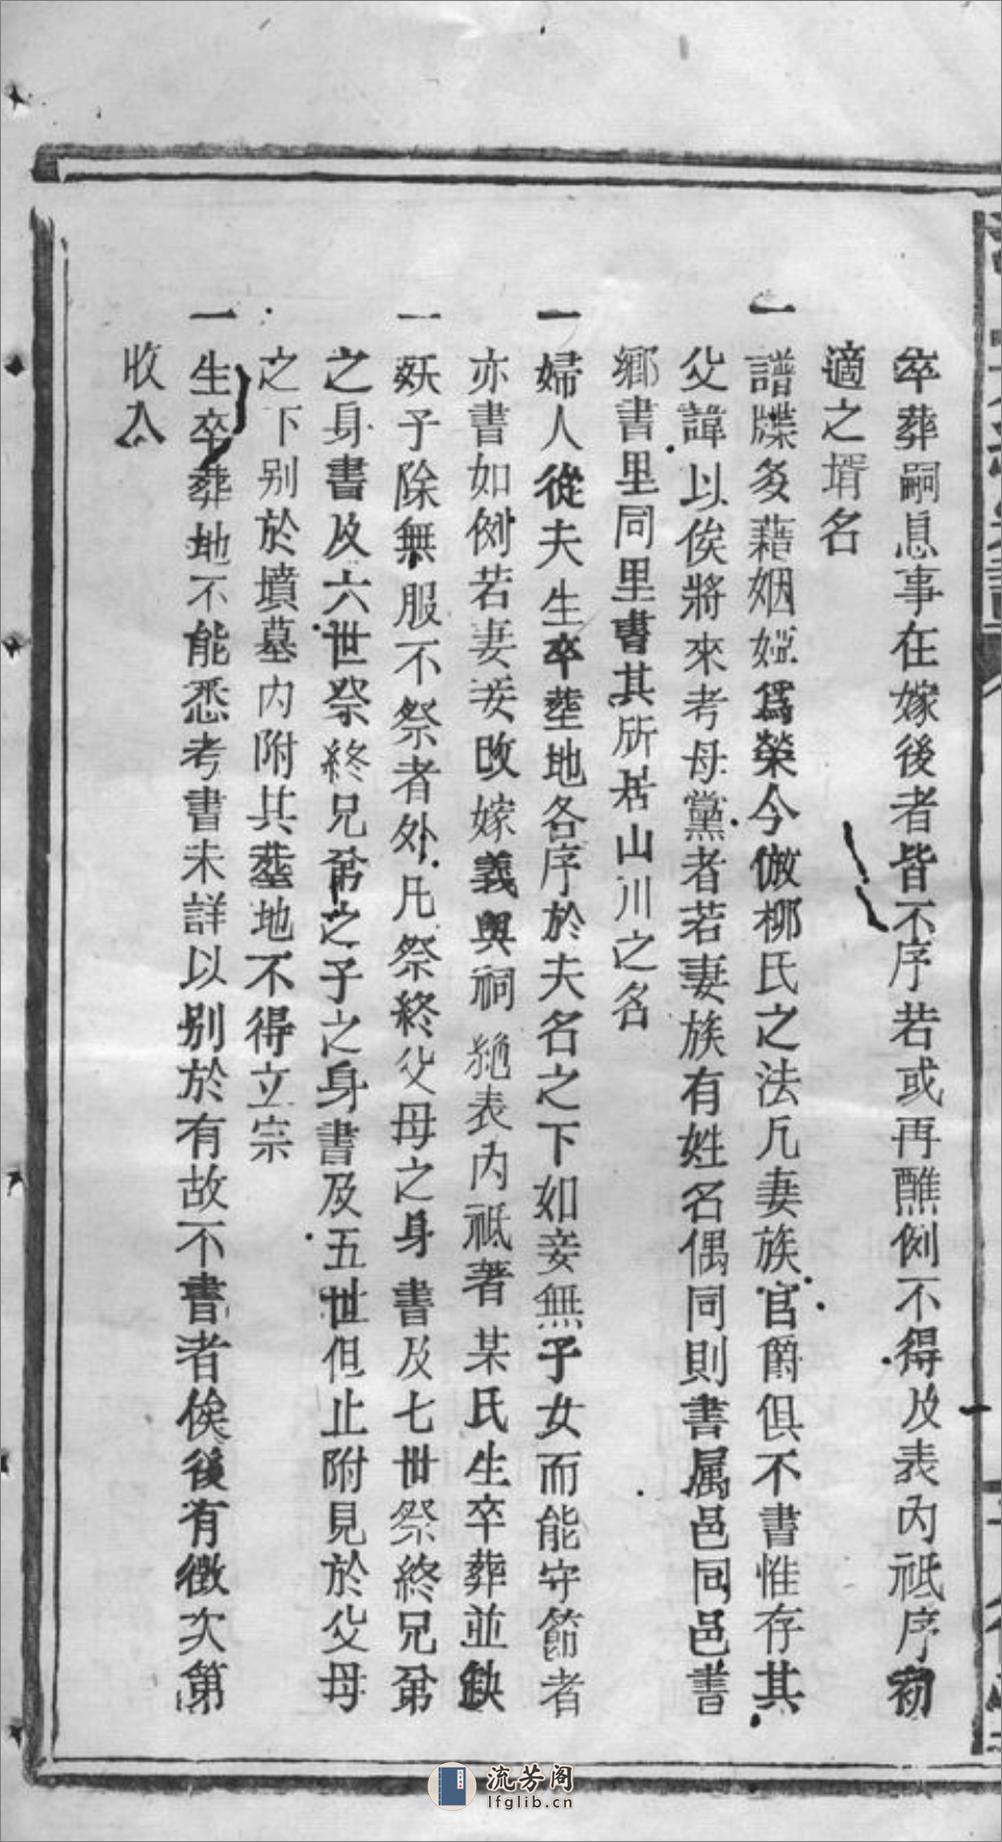 卒葬嗣息事在嫁後者皆不序若或再醮例不得及表内祗序初
適之壻名
一譜牒多藉姻婭爲榮今倣栁氏之法凡妻族官爵俱不書惟存其
父諱以俟將來考母黨者若妻族有姓名偶同則書属邑同邑書
鄉書里同里書其所居山川之名
一婦人從夫生卒塟地各序於夫名之下如妾無子女而能守節者
亦書如例若妻妾改嫁義與祠絶表内祗著某氏生卒葬並缺
一殀子除無服不祭者外凡祭終父母之身書及七世祭終兄弟
之身書及六世祭終兄弟之子之身書及五世但止附見於父母
之下别於墳墓内附其塟地不得立宗
一生卒葬地不能悉考書未詳以别於有故不書者俟後有徵次第
收入
流芳阁
lfglib.cn